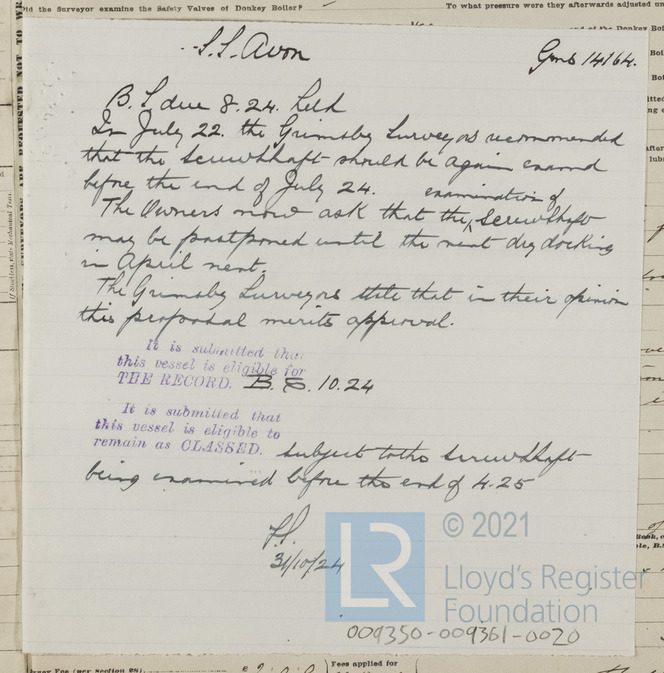 Did the Surveyor examine the Safety Valves of Donkey Boiler?
To what pressure were they afterwards adjusted un
S.S. Avon
Gms 14164.
B.S due 8.24. held
In July 22. the Grimsby Surveyors recommended
that the screwshaft should be again examd
before the end of July 24.
examination of
The Owners now ask that the screwshaft
may be postponed until the next dry docking
in April next.
The Grimsby Surveyors state that in their opinion
this proposal merits approval.
It is submitted that
this vessel is eligible for
THE RECORD. B.S. 10.24
It is submitted that
this vessel is eligible to
remain as CLASSED. subject to the screwshaft
being examined before the end of 4.25
31/10/24
LR
© 2021
Lloyd's Register
Foundation
009350-009361-0020
Fees applied for